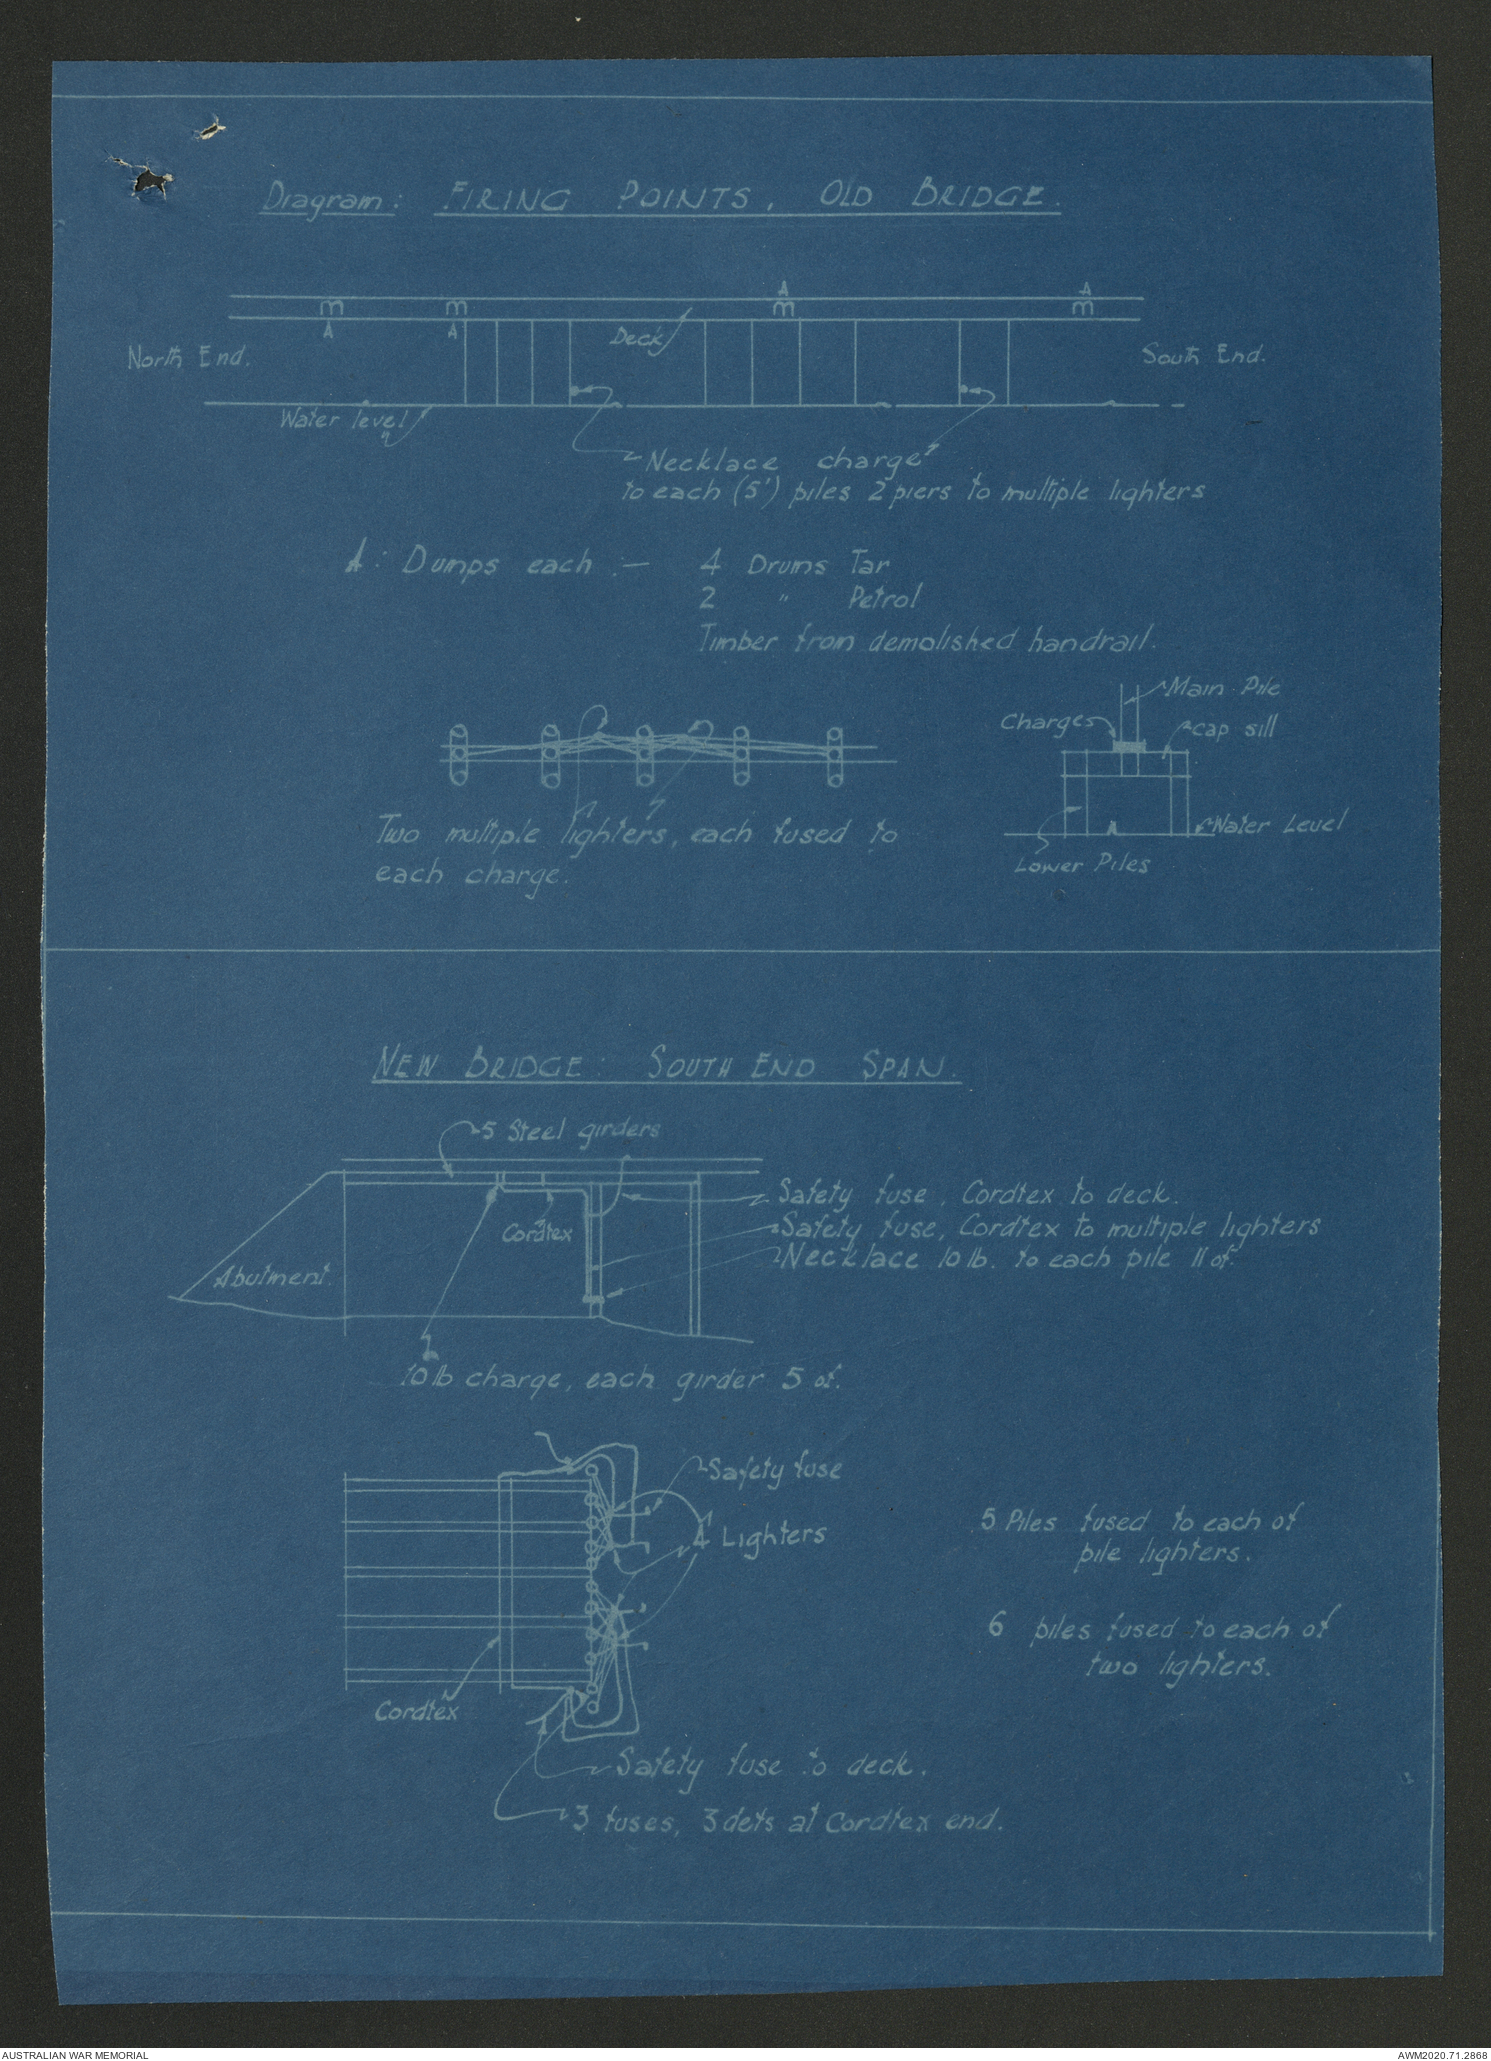 Diagram: FIRING POINTS, OLD BRIDGE.
A A
m m m m
A A
Deck
North End.
South End.
Water level
Necklace charge
to each (5') piles 2 piers to multiple lighters
A: Dumps each :— 4 Drums Tar
2 " Petrol
Timber from demolished handrail.
Main Pile
Charges
cap sill
Water Level
Lower Piles
Two multiple lighters, each fused to
each charge.
NEW BRIDGE: SOUTH END SPAN.
5 Steel girders
Safety fuse, Cordtex to deck.
Cordtex
Safety fuse, Cordtex to multiple lighters
Necklace 10 lb. to each pile 11 of.
Abutment.
10 lb charge, each girder 5 of.
Safety fuse
4 Lighters
5 Piles fused to each of
pile lighters.
6 piles fused to each of
two lighters.
Cordtex
Safety fuse to deck.
3 fuses, 3 dets at Cordtex end.
AUSTRALIAN WAR MEMORIAL
AWM2020.71.2868